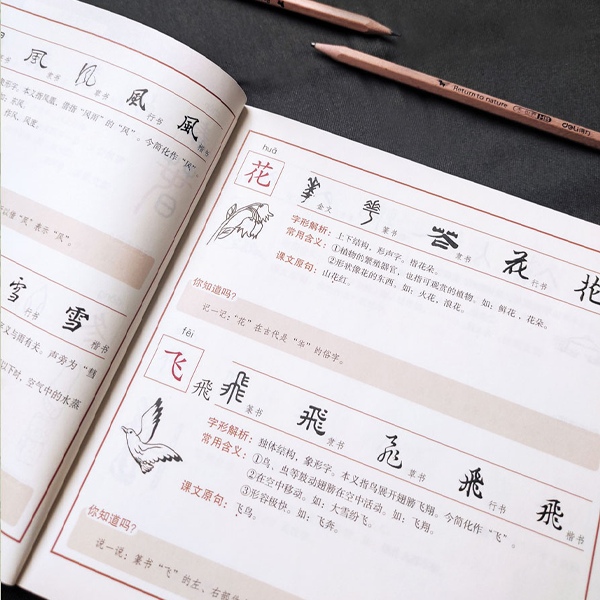 風
隶书
草书
行书
楷书
象形字。本义指凤凰，借指“风雨”的“风”。今简化作“风”
作风、风度。
示“风”。
雪
雪
行书
楷书
以下时，空气中的水蒸
huā
花
金文
篆书
隶书
花
行书
花
字形解析：上下结构，形声字。指花朵。
常用含义：①植物的繁殖器官，也指可观赏的植物。如：鲜花，花朵。
②形状像花的东西。如：火花，浪花。
课文原句：山花红。
你知道吗？
说一说：“花”在古代是“华”的俗字。
fēi
飞
飛
篆书
飛
隶书
草书
行书
飛
楷书
字形解析：独体结构，象形字。本义指鸟展开翅膀飞翔。今简化作“飞”。
常用含义：①鸟、虫等鼓动翅膀在空中活动。如：飞翔。
②在空中移动。如：大雪纷飞。
③形容极快。如：飞奔。
课文原句：飞鸟。
你知道吗？
说一说：篆书“飞”的左、右部件
Return to nature
HB
deli